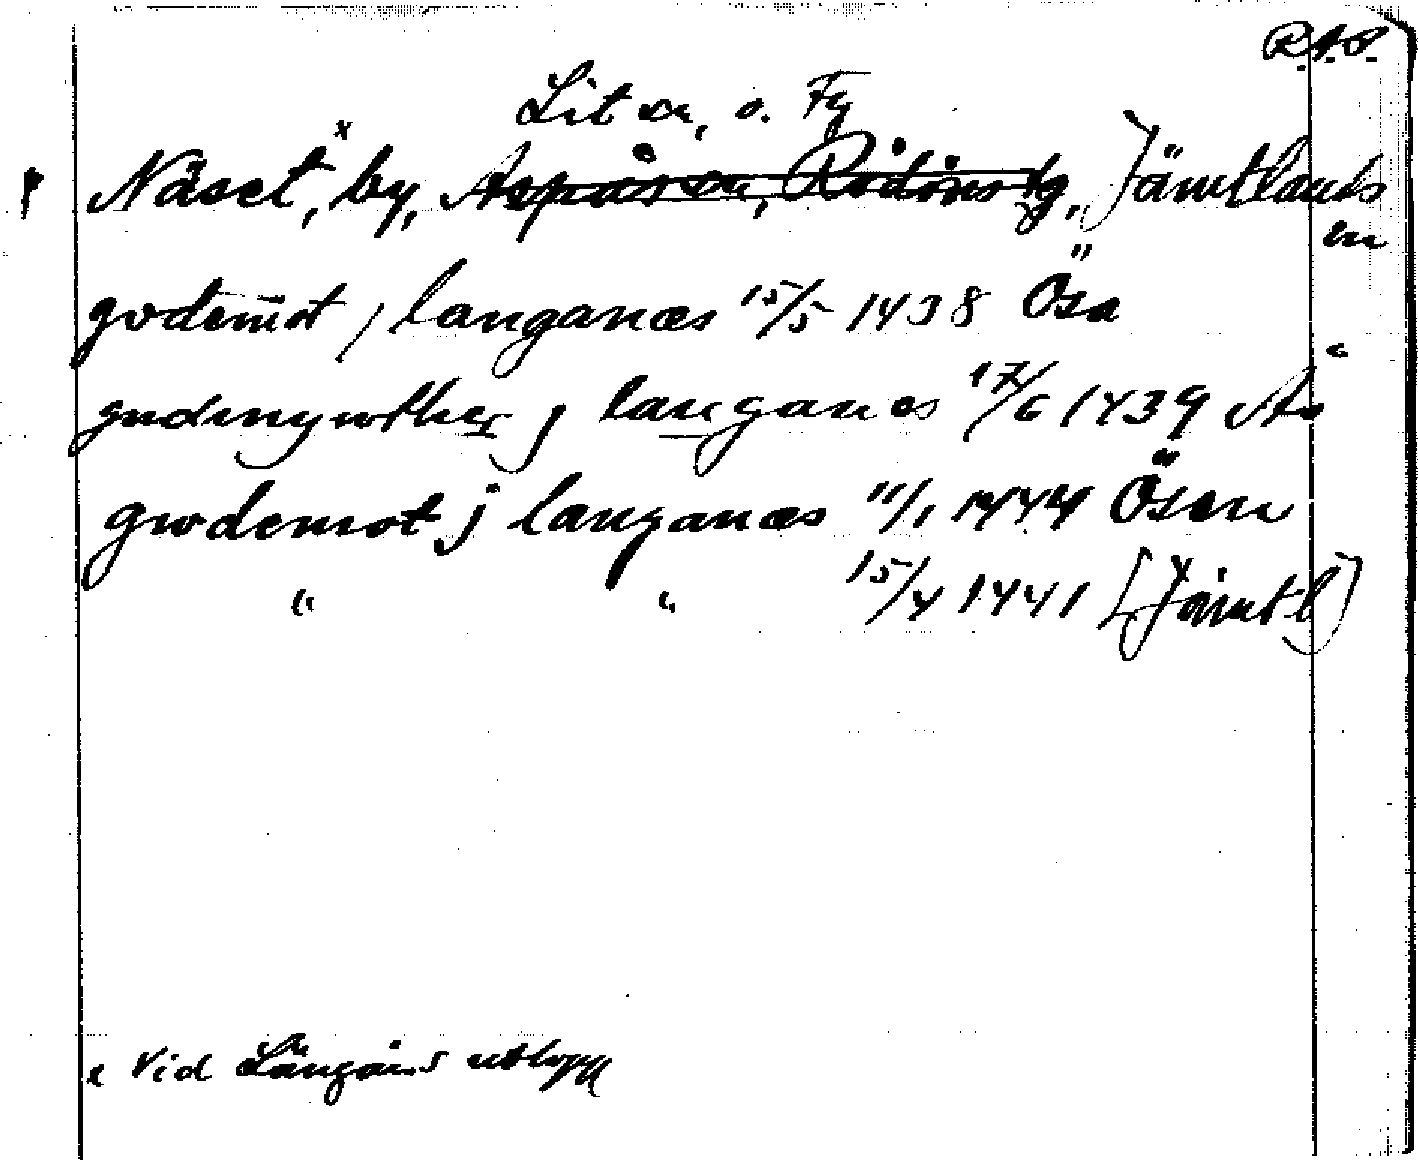 R.A.P.
Lit sn, o. Tg
Näset,ˣ by, Aspås sn, Rödöns tg, Jämtlands
län
gvdemot j langanæs 15/5 1438 Ösa
gudmywther j langanes 17/6 1439 Ås
gwdemot j langanæs 11/1 1444 Ösen
" " 15/4 1441 [Jämtl]
x Vid Långåns utlopp